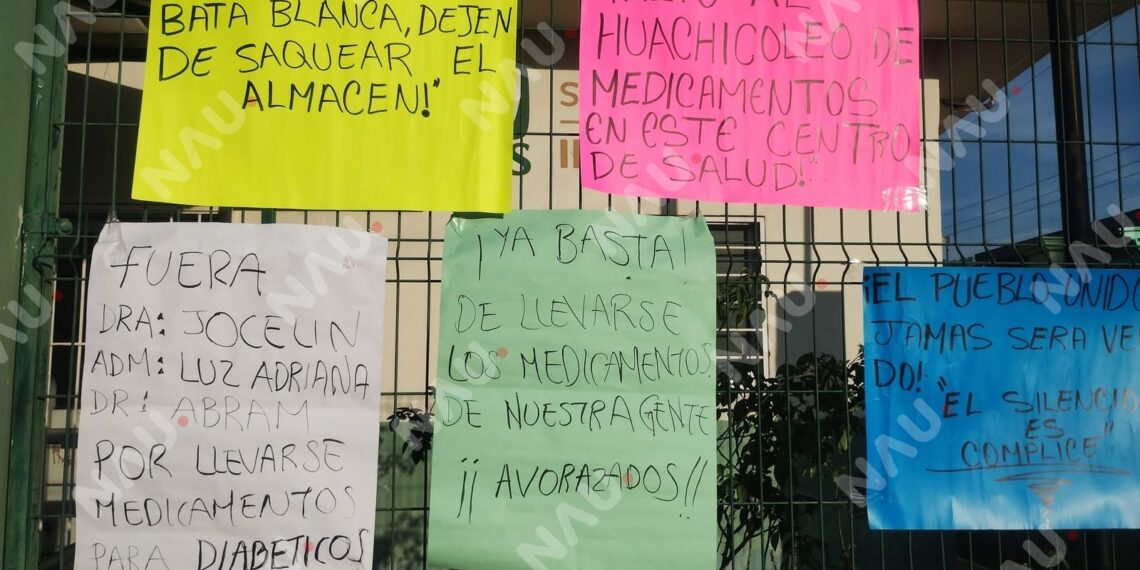 BATA BLANCA, DEJEN
DE SAQUEAR EL
ALMACEN!"
HUACHICOLEO DE
MEDICAMENTOS
EN ESTE CENTRO
DE SALUD!"
FUERA
DRA: JOCELIN
ADM: LUZ ADRIANA
DR: ABRAM
POR LLEVARSE
MEDICAMENTOS
PARA DIABETICOS
¡YA BASTA!
DE LLEVARSE
LOS MEDICAMENTOS
DE NUESTRA GENTE
¡¡ AVORAZADOS!!
¡EL PUEBLO UNIDO
JAMAS SERA VE
DO!
"EL SILENCIO
ES
COMPLICE"
NAU